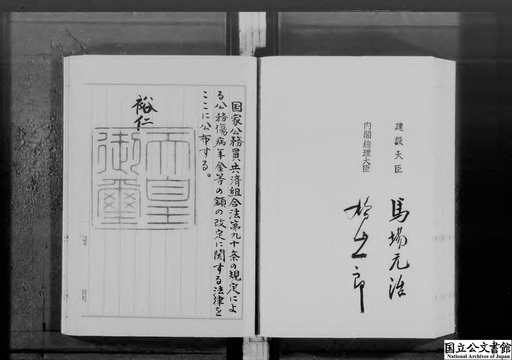 建設大臣 馬場元治
内閣総理大臣 鳩山一郎
国家公務員共済組合法第九十条の規定によ
る公務傷病年金等の額の改定に関する法律を
ここに公布する。
裕仁
天皇
御璽
国立公文書館
National Archives of Japan